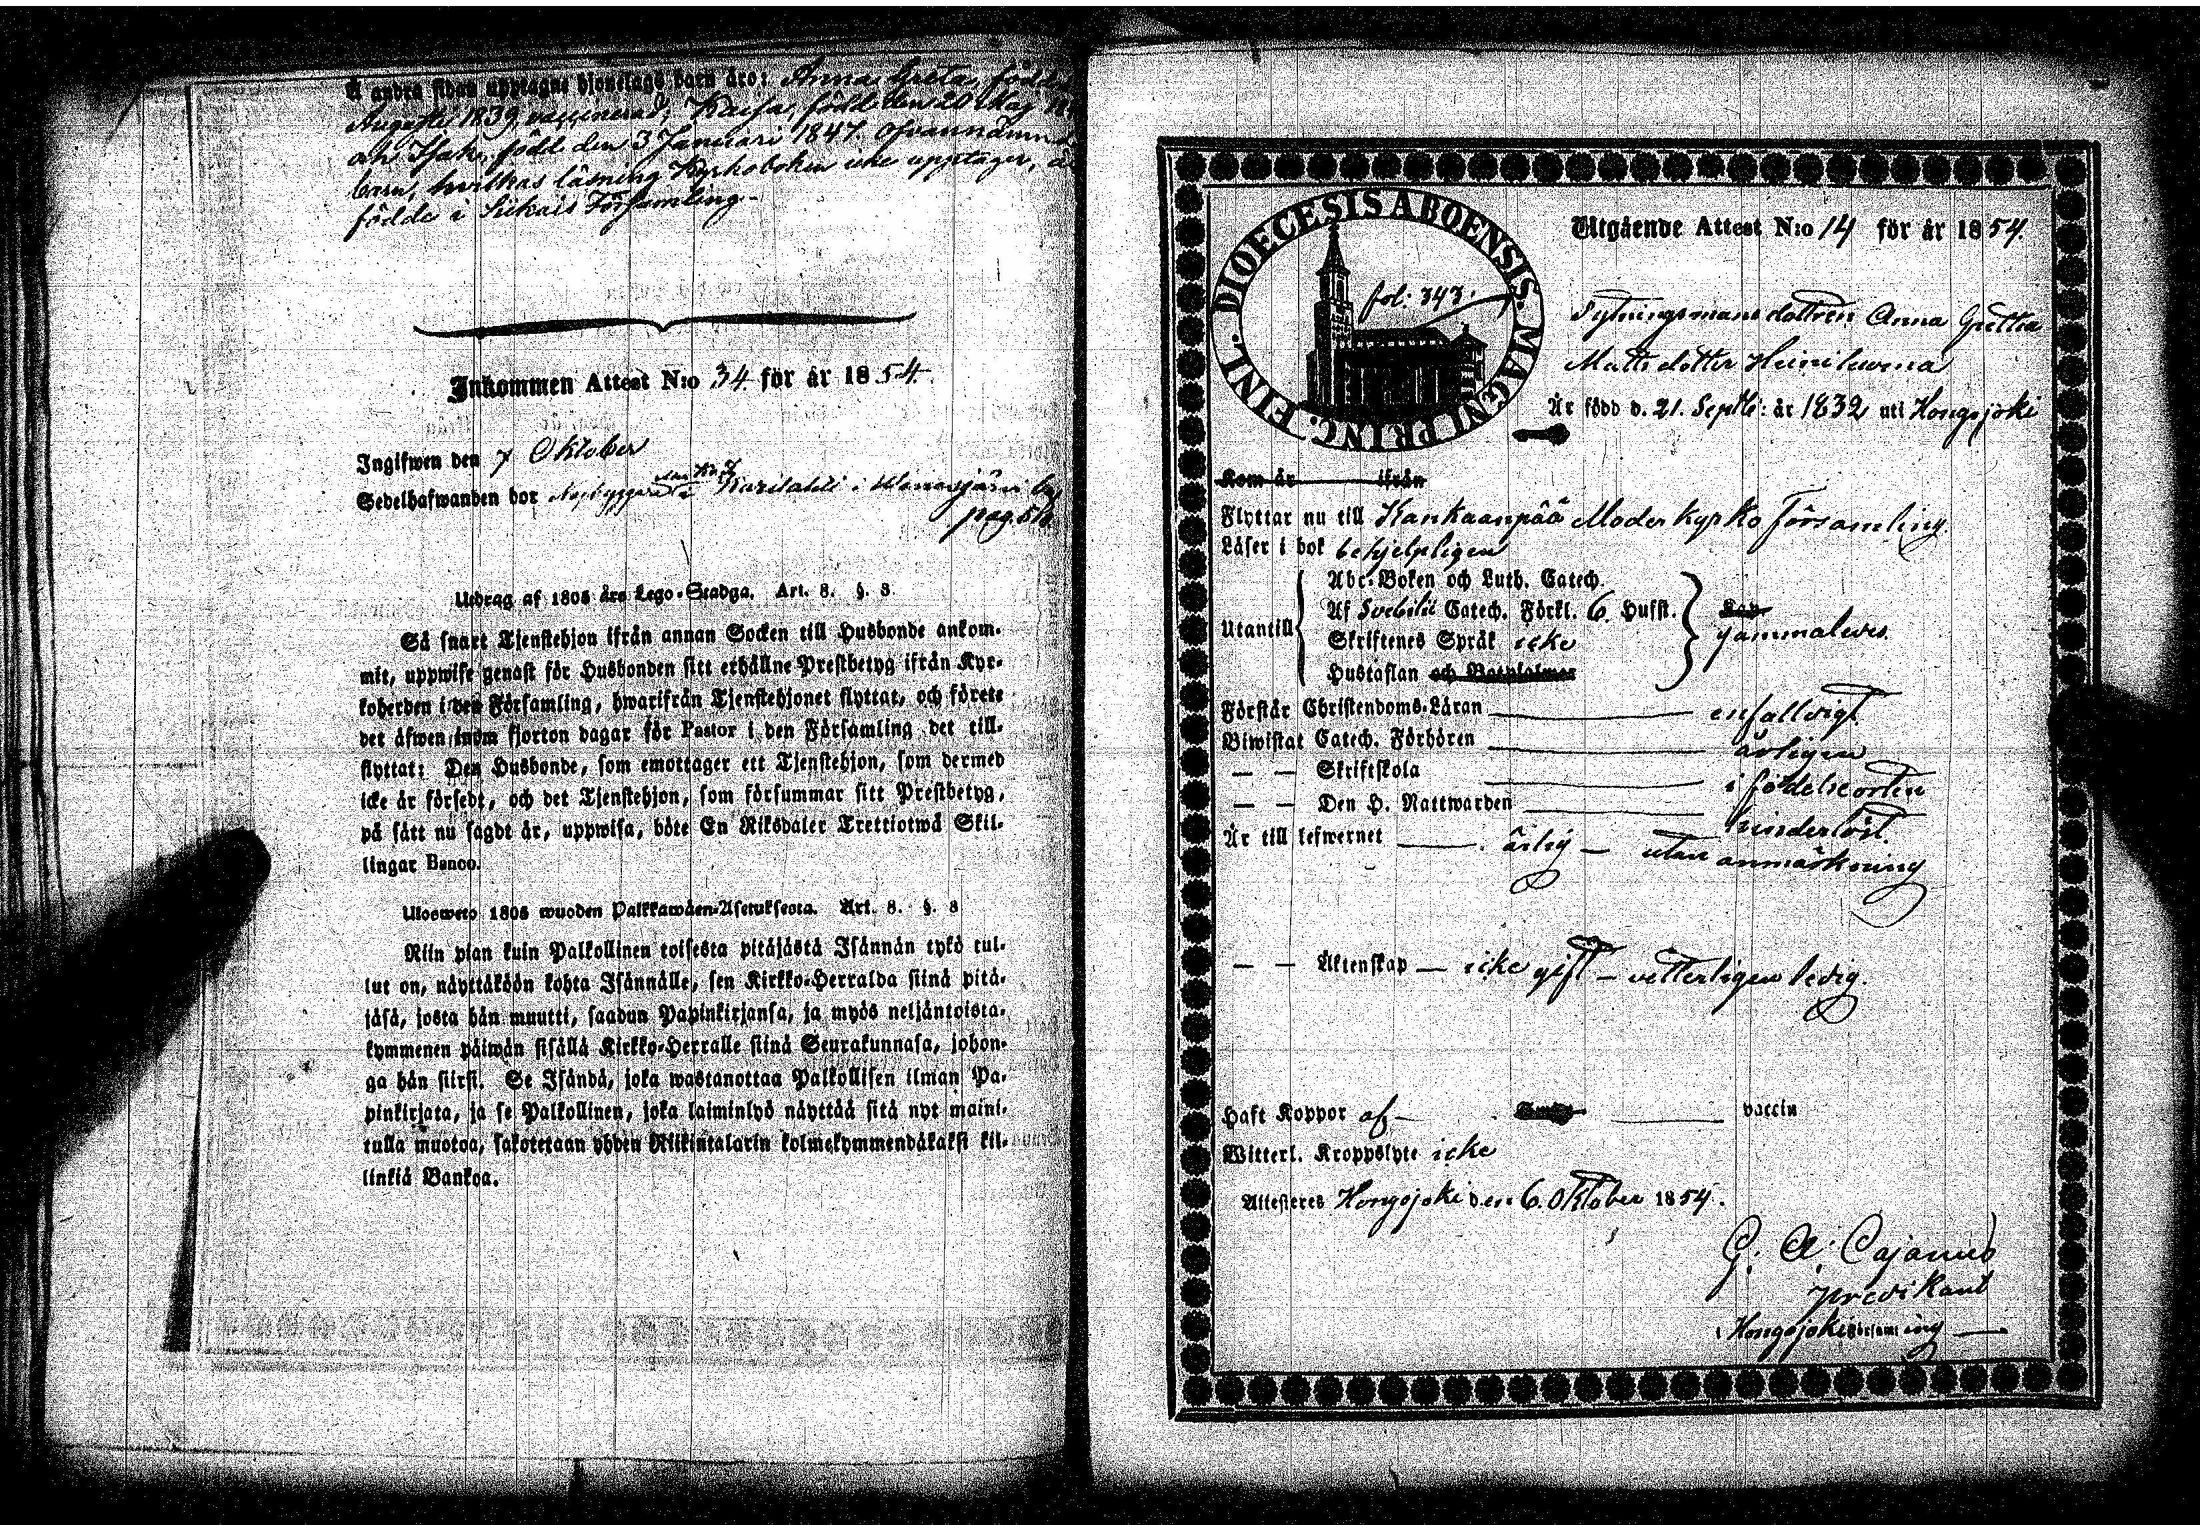 å andra sidan upptagne hjonelags barn äro: Anna Greta, född
Augusti 1839, vaccinerad; Kaisa, född den 20 Maj
och Isak, född den 3 Januari 1847. Ofvannämnda
barn, hvilkas läsning Kyrkoboken icke upptager, ä
födde i Siikais Församling.
Inkommen Attest N:o 34 för år 1854.
Ingifwen den 7 Oktober
Sedelhafwanden bor Karilahti i
pag. 516
Utdrag af 1805 års Lego-Stadga. Art. 8. §. 8
Så snart Tjenstehjon ifrån annan Socken till Husbonde ankom-
mit, uppwise genast för Husbonden sitt erhållne Prestbetyg ifrån Kyr-
koherden i den Församling, hwarifrån Tjenstehjonet flyttat, och förete
det äfwen inom fjorton dagar för Pastor i den Församling det till-
flyttat: Den Husbonde, som emottager ett Tjenstehjon, som dermed
icke är försedt, och det Tjenstehjon, som försummar sitt Prestbetyg,
på sätt nu sagdt är, uppwisa, böte En Riksdaler Trettiotwå Skil-
lingar Banco.
Ulosweto 1805 wuoden Palkkawäen-Asetuksesta. Art. 8. §. 8
Niin pian kuin Palkollinen toisesta pitäjästä Isännän tykö tul-
lut on, näyttäköön kohta Isännälle, sen Kirkko-Herralda siinä pitä-
jäsä, josta hän muutti, saadun Papinkirjansa, ja myös neljäntoista-
kymmenen päiwän sisällä Kirkko-Herralle siinä Seurakunnasa, johon-
ga hän siirsi. Se Isändä, joka wastanottaa Palkollisen ilman Pa-
pinkirjata, ja se Palkollinen, joka laiminlyö näyttää sitä nyt maini-
tulla muotoa, sakotetaan yhden Riikintalarin kolmekymmendäkaksi kil-
linkiä Bankoa.
DIOECESIS ABOENSIS. MAGNI PRINC. FINL.
fol: 343.
Utgående Attest N:o 14 för år 1854.
Anna Gretta
Matts dotter Heiniluoma
Är född d. 21. Septbr: år 1832 uti Hongojoki
Kom år ifrån
Flyttar nu till Kankaanpää Moderkyrko Församling.
Läser i bok behjelpligen
Utantill
Abc-Boken och Luth. Catech.
Af Svebilii Catech. Förkl. 6. Hufst.
Skriftenes Språk icke
Hustaflan och Botpsalmer
Förstår Christendoms-Läran enfalldigt
Biwistat Catech. Förhören årligen
— — Skriftskola i födelseorten
— — Den H. Nattwarden hinderlöst
Är till lefwernet ärlig — utan anmärkning
— — Äktenskap — icke gift — vetterligen ledig.
Haft Koppor af vaccin
Witterl. Kroppslyte icke
Attesteres Hongojoki den 6. Oktober 1854.
G: A: Cajanus
predikant
i Hongojoki Församling